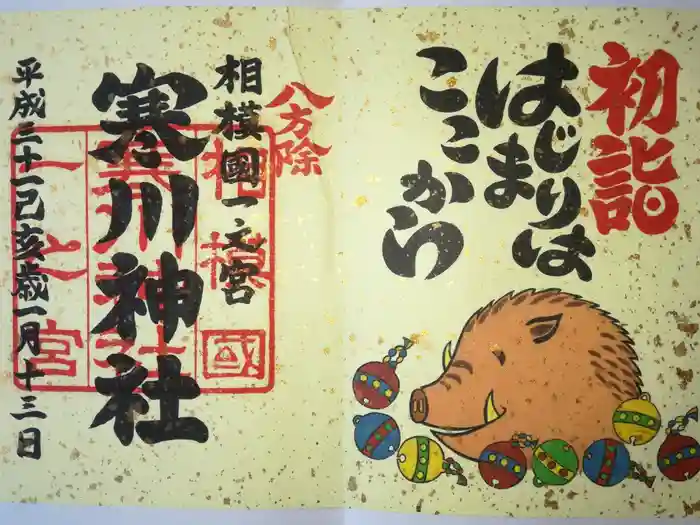 初詣
はじまりは
ここから
八方除
相模國一之宮
寒川神社
平成三十一己亥歳一月十三日
相模國
一之宮